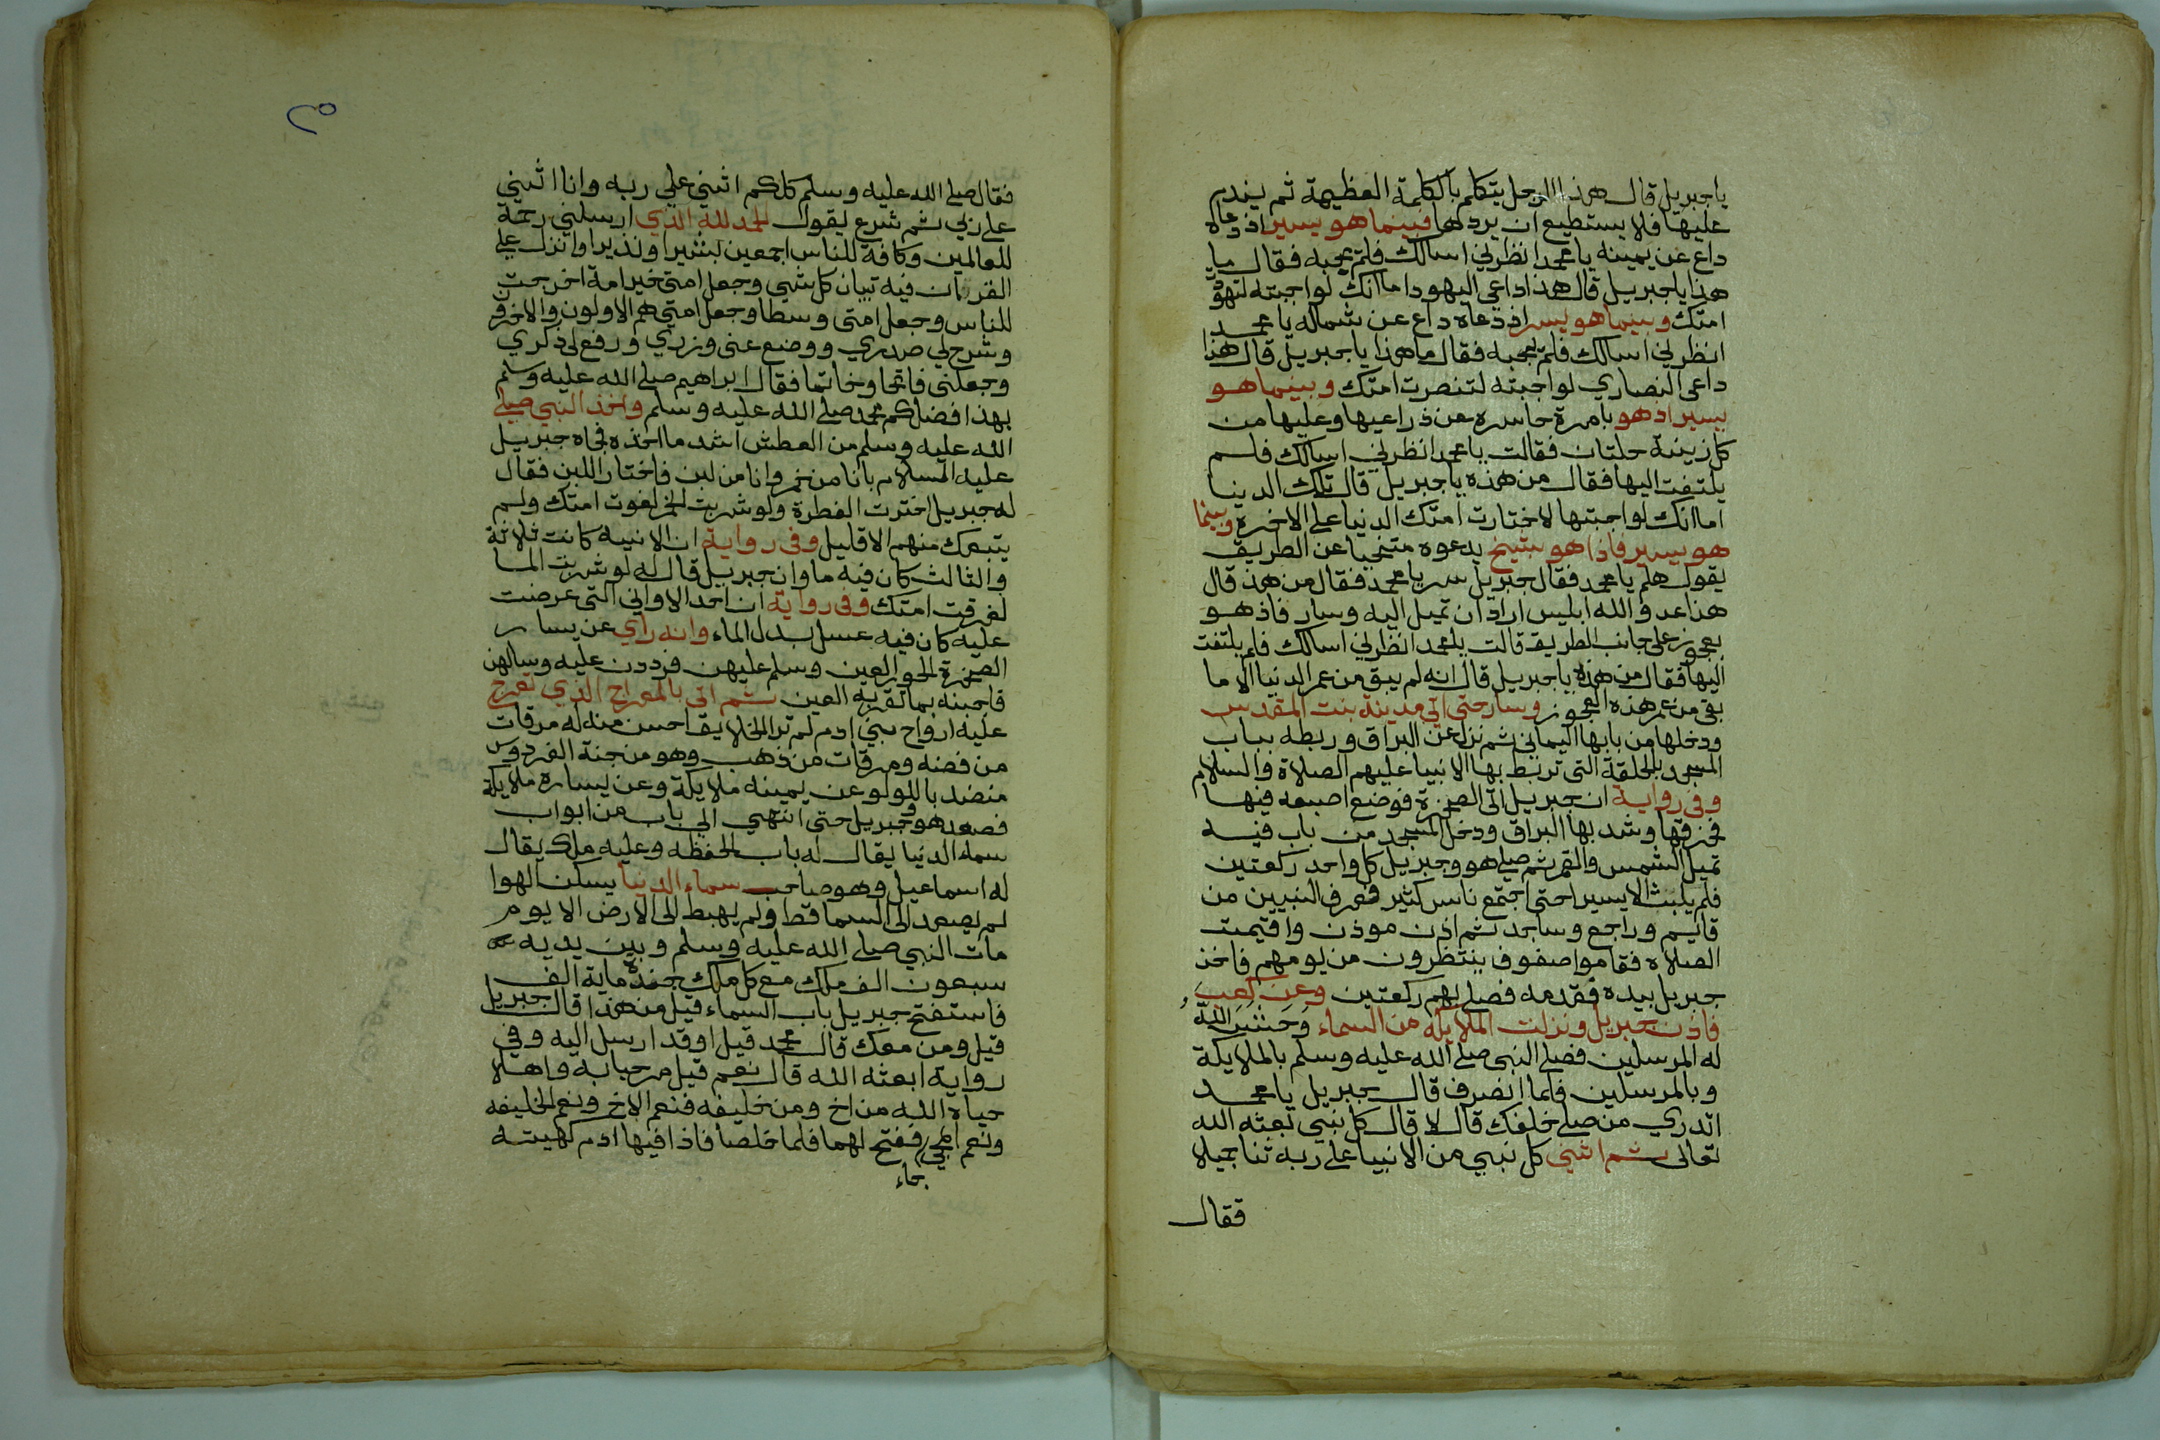 يا جبريل قال هذا الرجل يتكلم بالكلمة العظيمة ثم يندم
عليها فلا يستطيع ان يردها فبينما هو يسير اذ دعاه
داع عن يمينه يا محمد انظرني اسالك فلم يجبه فقال ما
هذا يا جبريل قال هذا داعي اليهود اما انك لو اجبته لتهود
امتك وبينما هو يسير اذ دعاه داع عن شماله يا محمد
انظرني اسالك فلم يجبه فقال ما هذا يا جبريل قال هذا
داعي النصاري لو اجبته لتنصرت امتك وبينما هو
يسير اذ هو بامرة حاسرة عن ذراعيها وعليها من
كل زينة حلتان فقالت يا محمد انظرني اسالك فلم
يلتفت اليها فقال من هذه يا جبريل قال تلك الدنيا
اما انك لو اجبتها لاختارت امتك الدنيا علي الاخرة وبينما
هو يسير فاذا هو بشيخ يدعوه متنحيا عن الطريق
يقول هلم يا محمد فقال جبريل سر يا محمد فقال من هذا قال
هذا عدو الله ابليس اراد ان تميل اليه وسار فاذ هو
بعجوز على جانب الطريق قالت يا محمد انظرني اسالك فلم يلتفت
اليها فقال من هذه يا جبريل قال انه لم يبق من عمر الدنيا الا ما
بقي من عمر هذه العجوز وسار حتي اتي مدينة بيت المقدس
ودخلها من بابها اليماني ثم نزل عن البراق وربطه بباب
المسجد بالحلقة التي تربط بها الانبيا عليهم الصلاة والسلام
وفي رواية ان جبريل اتي الصخرة فوضع اصبعه فيها
فخرقها وشد بها البراق ودخل المسجد من باب فيه
تميل الشمس والقمر ثم صلي هو وجبريل كل واحد ركعتين
فلم يلبث الا يسيرا حتي اجتمع ناس كثير فعرف النبيين من
قايم وراجع وساجد ثم اذن موذن واقيمت
الصلاة فقاموا صفوف ينتظرون من يومهم فاخذ
جبريل بيده فقدمه فصلي بهم ركعتين وعن كعب
فاذن جبريل ونزلت الملايكه من السماء وحشر الله
له المرسلين فصلي النبي صلي الله عليه وسلم بالملايكة
وبالمرسلين فلما انصرف قال جبريل يا محمد
اتدري من صلي خلفك قال لا قال كل نبي بعثه الله
تعالى ثم اثني كل نبي من الانبيا علي ربه ثنا جميلا
فقال
فقال صلي الله عليه وسلم كلكم اثني علي ربه وانا اثني
علي ربي ثم شرع يقول الحمد لله الذي ارسلني رحمة
للعالمين وكافة للناس اجمعين بشيرا ونذيرا وانزل علي
القران فيه تبيان كل شي وجعل امتي خير امة اخرجت
للناس وجعل امتى وسطا وجعل امتي هم الاولون والاخرون
وشرح لي صدري ووضع عني وزري ورفع لي ذكري
وجعلني فاتحا وخاتما فقال ابراهيم صلي الله عليه وسلم
بهذا افضلكم محمد صلي الله عليه وسلم واخذ النبي صلي
الله عليه وسلم من العطش اشد ما اخذه فجاه جبريل
عليه السلام بانا من خمر وانا من لبن فاختار اللبن فقال
له جبريل اخترت الفطرة ولو شربت الخمر لغوت امتك ولم
يتبعك منهم الا قليل وفي رواية ان الانيه كانت ثلاثة
والثالث كان فيه ما وان جبريل قال له لو شربت الما
لغرقت امتك وفي رواية ان احد الاواني التي عرضت
عليه كان فيه عسل بدل الماء وانه راي عن يسار
الصخرة الحور العين وسلم عليهن فرددن عليه وسالهن
فاجبنه بما تقر به العين ثم اتي بالمعراج الذي تعرج
عليه ارواح بني ادم لم تر الخلايق احسن منه له مرقات
من فضه ومرقات من ذهب وهو من جنة الفردوس
منضد باللولو عن يمينه ملايكة وعن يساره ملايكة
فصعد هو وجبريل حتي انتهي الي باب من ابواب
سماء الدنيا يقال له باب الحفظه وعليه ملك يقال
له اسماعيل وهو صاحب سماء الدنيا يسكن الهوا
لم يصعد الى السما قط ولم يهبط الى الارض الا يوم
مات النبي صلي الله عليه وسلم وبين يديه
سبعون الف ملك مع كل ملك جنده ماية الف
فاستفتح جبريل باب السماء قيل من هذا قال جبريل
قيل ومن معك قال محمد قيل اوقد ارسل اليه وفي
رواية ابعثه الله قال نعم قيل مرحبا به واهلا
حياه الله من اخ ومن خليفه فنعم الاخ ونعم الخليفه
ونعم المجي ففتح لهما فلما خلصا فاذا فيها ادم كهيته
جاء